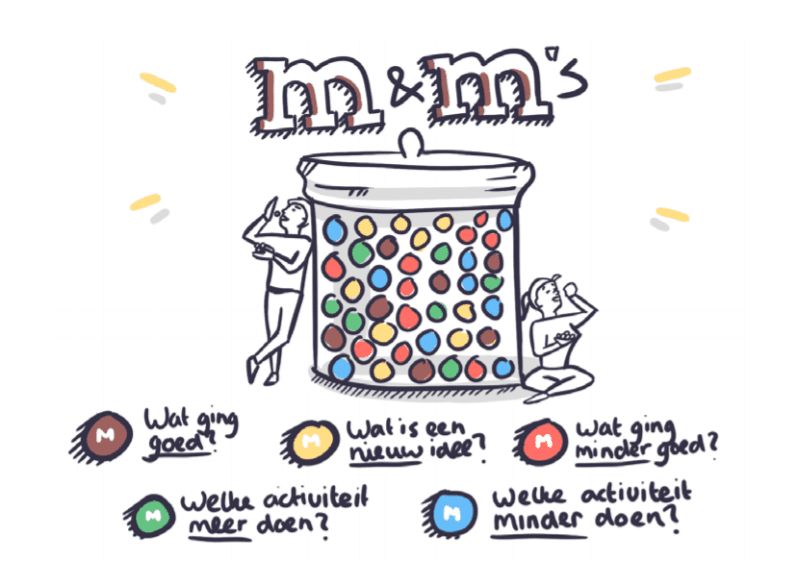 m & m's
M Wat ging
goed?
M Wat is een
nieuw idee?
M Wat ging
minder goed?
M Welke activiteit
meer doen?
M Welke activiteit
minder doen?